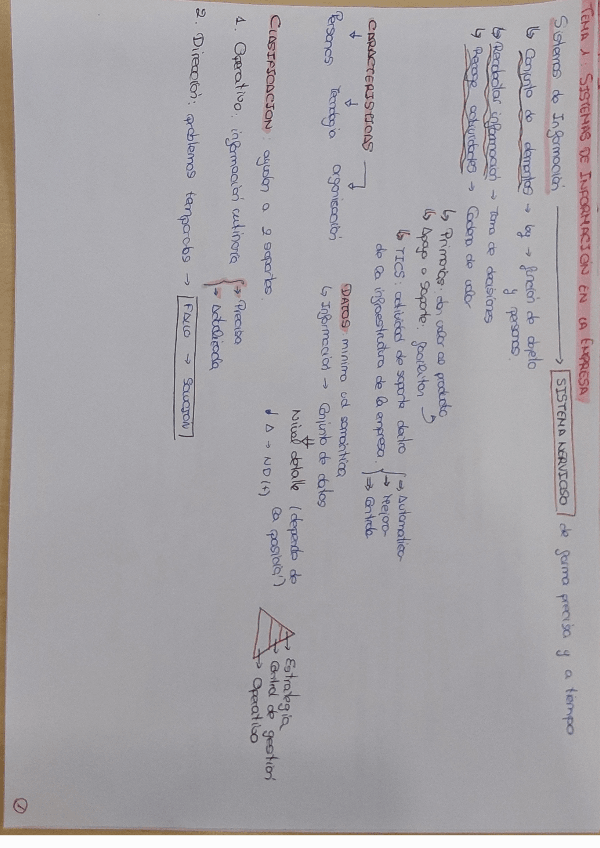 TEMA 1: SISTEMAS DE INFORMACIÓN EN LA EMPRESA
Sistemas de Información → SISTEMA NERVIOSO / de forma precisa y a tiempo
↳ Conjunto de elementos → ley → función de objeto
y personas.
↳ Recolectar información → Toma de decisiones
↳ Recoge actividades → Cadena de valor
↳ Primarias: dan valor al producto
↳ Apoyo o Soporte: facilitan
↳ TICS: actividad de soporte dentro
de la infraestructura de la empresa.
→ Automatiza
→ Mejora
→ Controla
CARACTERÍSTICAS
Personas Tecnología organización
DATOS mínima ud semántica
↳ Información → Conjunto de datos
Nivel detalle (depende de
↓ Δ → ND(+) la posición)
CLASIFICACIÓN: ayudan a 2 soportes.
1. Operativo: información rutinaria
→ Precisa
→ Actualizada
→ Estrategia
→ Control de gestión
→ Operativo
2. Dirección: problemas temporales → FLUJO → SOLUCIÓN
1